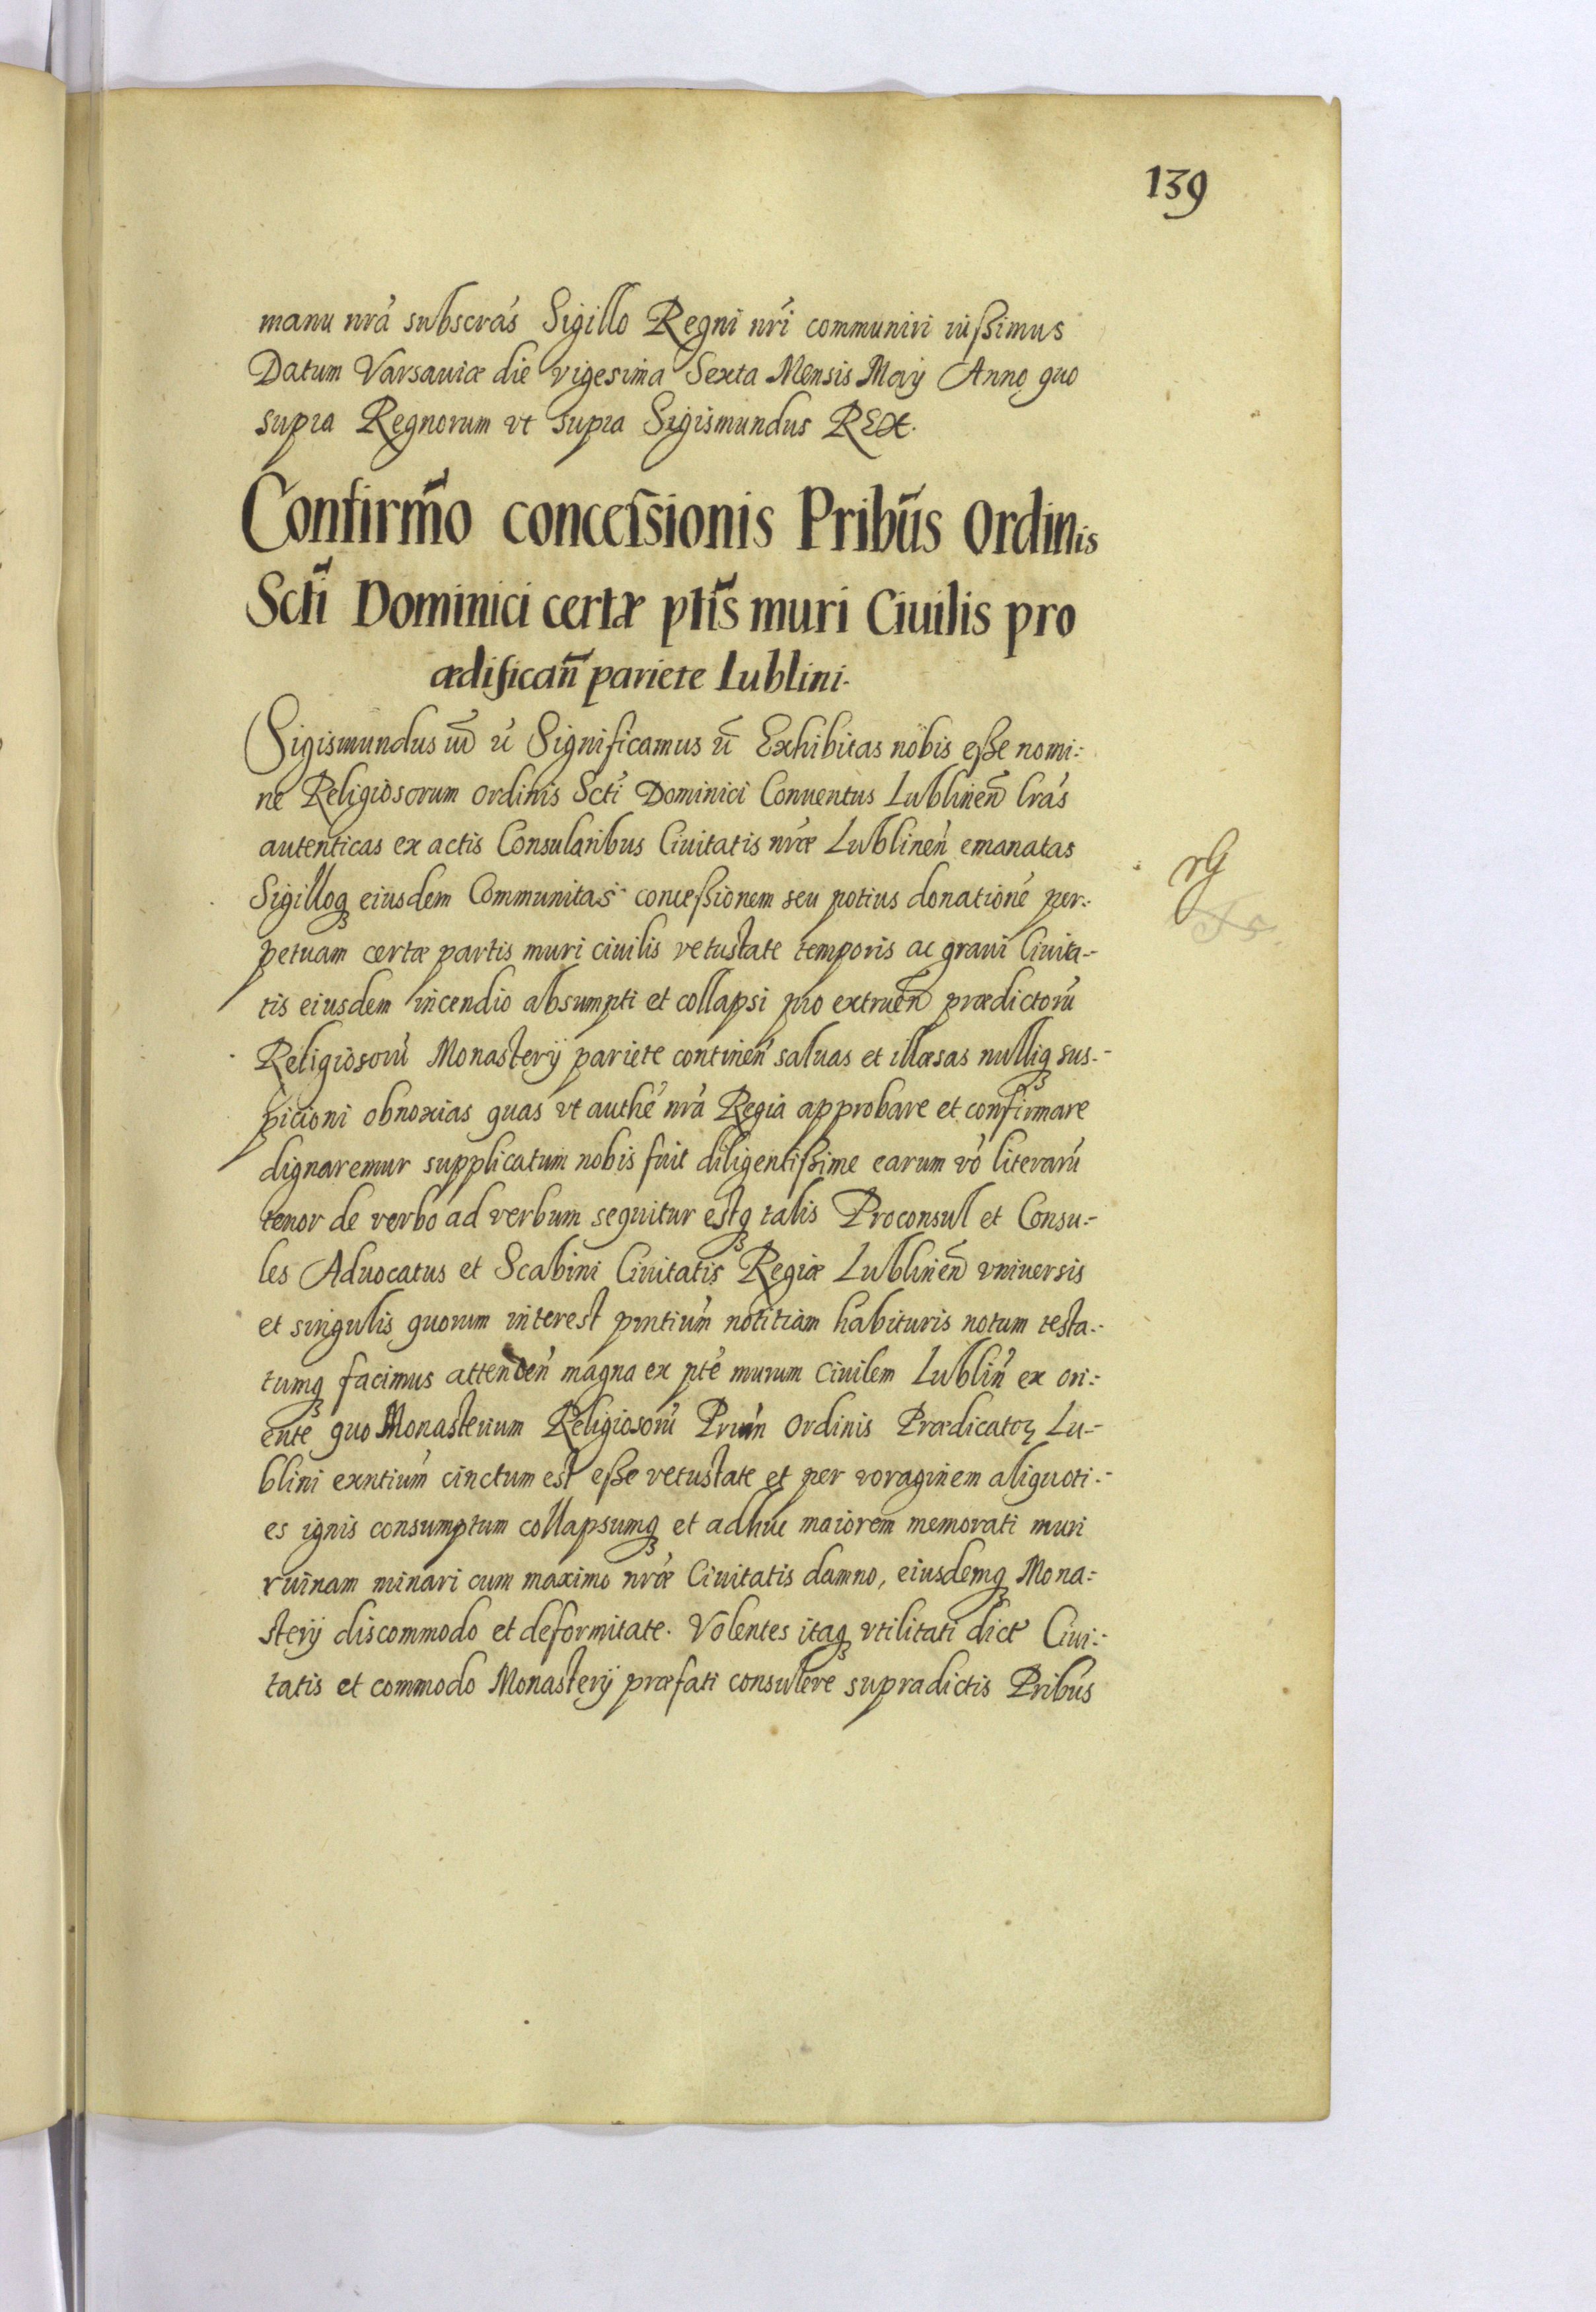 139
manu nrã subscrãs Sigillo Regni nrĩ communiri iussimus
Datum Varsauiæ die vigesima Sexta Mensis Maij Anno quo
supra Regnorum vt supra Sigismundus REX.
Confirmõ concessionis Pribũs Ordinis
Sctĩ Dominici certæ ptĩs muri Ciuilis pro
ædificañ pariete Lublini.
Sigismundus ũ Significamus ũ Exhibitas nobis esse nomi:
ne Religiosorum ordinis Sctĩ Dominici Conuentus Lublineñ lrãs
autenticas ex actis Consularibus Ciuitatis nræ̃ Lublineñ emanatas
Sigilloq eiusdem Communitas concessionem seu potius donationẽ per:
petuam certæ partis muri ciuilis vetustate temporis ac graui Ciuita:
tis eiusdem incendio absumpti et collapsi pro extrueñ prædictorũ
Religiosorũ Monasterij pariete contineñ saluas et illæsas nulliq sus:
picioni obnoxias quas vt authẽ nrã Regia approbare et confirmare
dignaremur supplicatum nobis fuit diligentissime earum võ literarũ
tenor de verbo ad verbum sequitur estq talis Proconsul et Consu:
les Aduocatus et Scabini Ciuitatis Regiæ Lublineñ vniuersis
et singulis quorum interest pntiũm notitiam habituris notum testa:
tumq facimus attendeñ magna ex ptẽ murum Ciuilem Lubliñ ex ori:
ente quo Monasterium Religiosorũ Prũm Ordinis Prædicatoꝝ Lu:
blini exntiũm cinctum est esse vetustate et per voraginem aliquoti:
es ignis consumptum collapsumq et adhuc maiorem memorati muri
ruinam minari cum maximo nræ̃ Ciuitatis damno, eiusdemq Mona:
sterij discommodo et deformitate. Volentes itaq vtilitati dict Ciui:
tatis et commodo Monasterij præfati consulere supradictis Pribũs